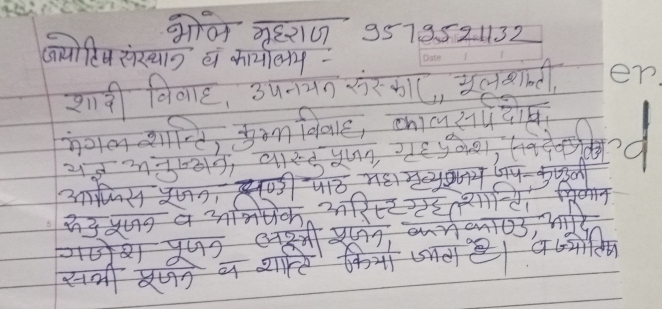 भोले महराज 9579521132
ज्योतिष संस्थान वं कार्यालय -
शादी विवाह, उपनयन संस्कार, मूलशान्ती,
मंगल शान्ति, कुम्भ विवाह, कालसर्प दोष,
यज्ञ अनुष्ठान, वास्तु पूजन, गृह प्रवेश,
आफिस पूजन, चण्डी पाठ महामृत्युंजय जप - कुण्डली
रुद्र पूजन व अभिषेक, अरिस्ट गृह शान्ति,
गणेश पूजन लक्ष्मी पूजन, कर्मकाण्ड, आदि
सभी पूजन व शान्ति किया जाता है। व ज्योतिष
er.
d
Date